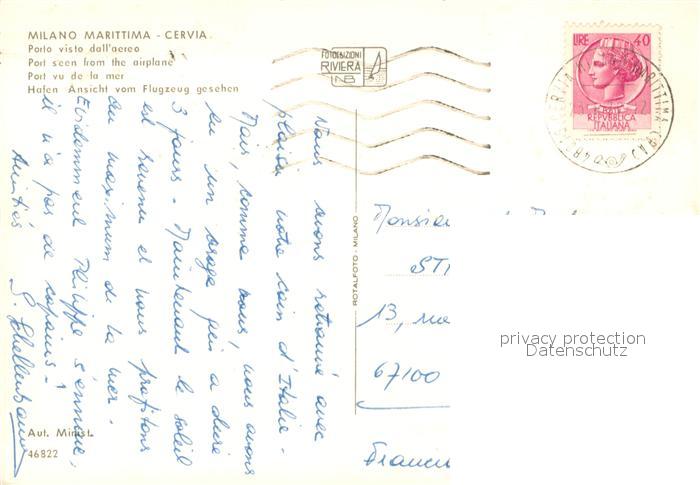 MILANO MARITTIMA - CERVIA
Porto visto dall'aereo
Port seen from the airplane
Port vu de la mer
Hafen Ansicht vom Flugzeug gesehen
FOTOEDIZIONI
RIVIERA
LIRE 40
REPVBBLICA
ITALIANA
Nous avons retrouvé avec
plaisir notre coin d'Italie.
Mais, comme vous, nous avons
eu un orage qui a duré
3 jours. Maintenant le soleil
est revenu et nous profitons
au maximum de la mer.
Evidemment Philippe s'ennuie,
il n'a pas de copains!
Amitiés
ROTALFOTO - MILANO
Monsieu
STI
13, rue
67100
privacy protection
Datenschutz
Aut. Minist.
46822